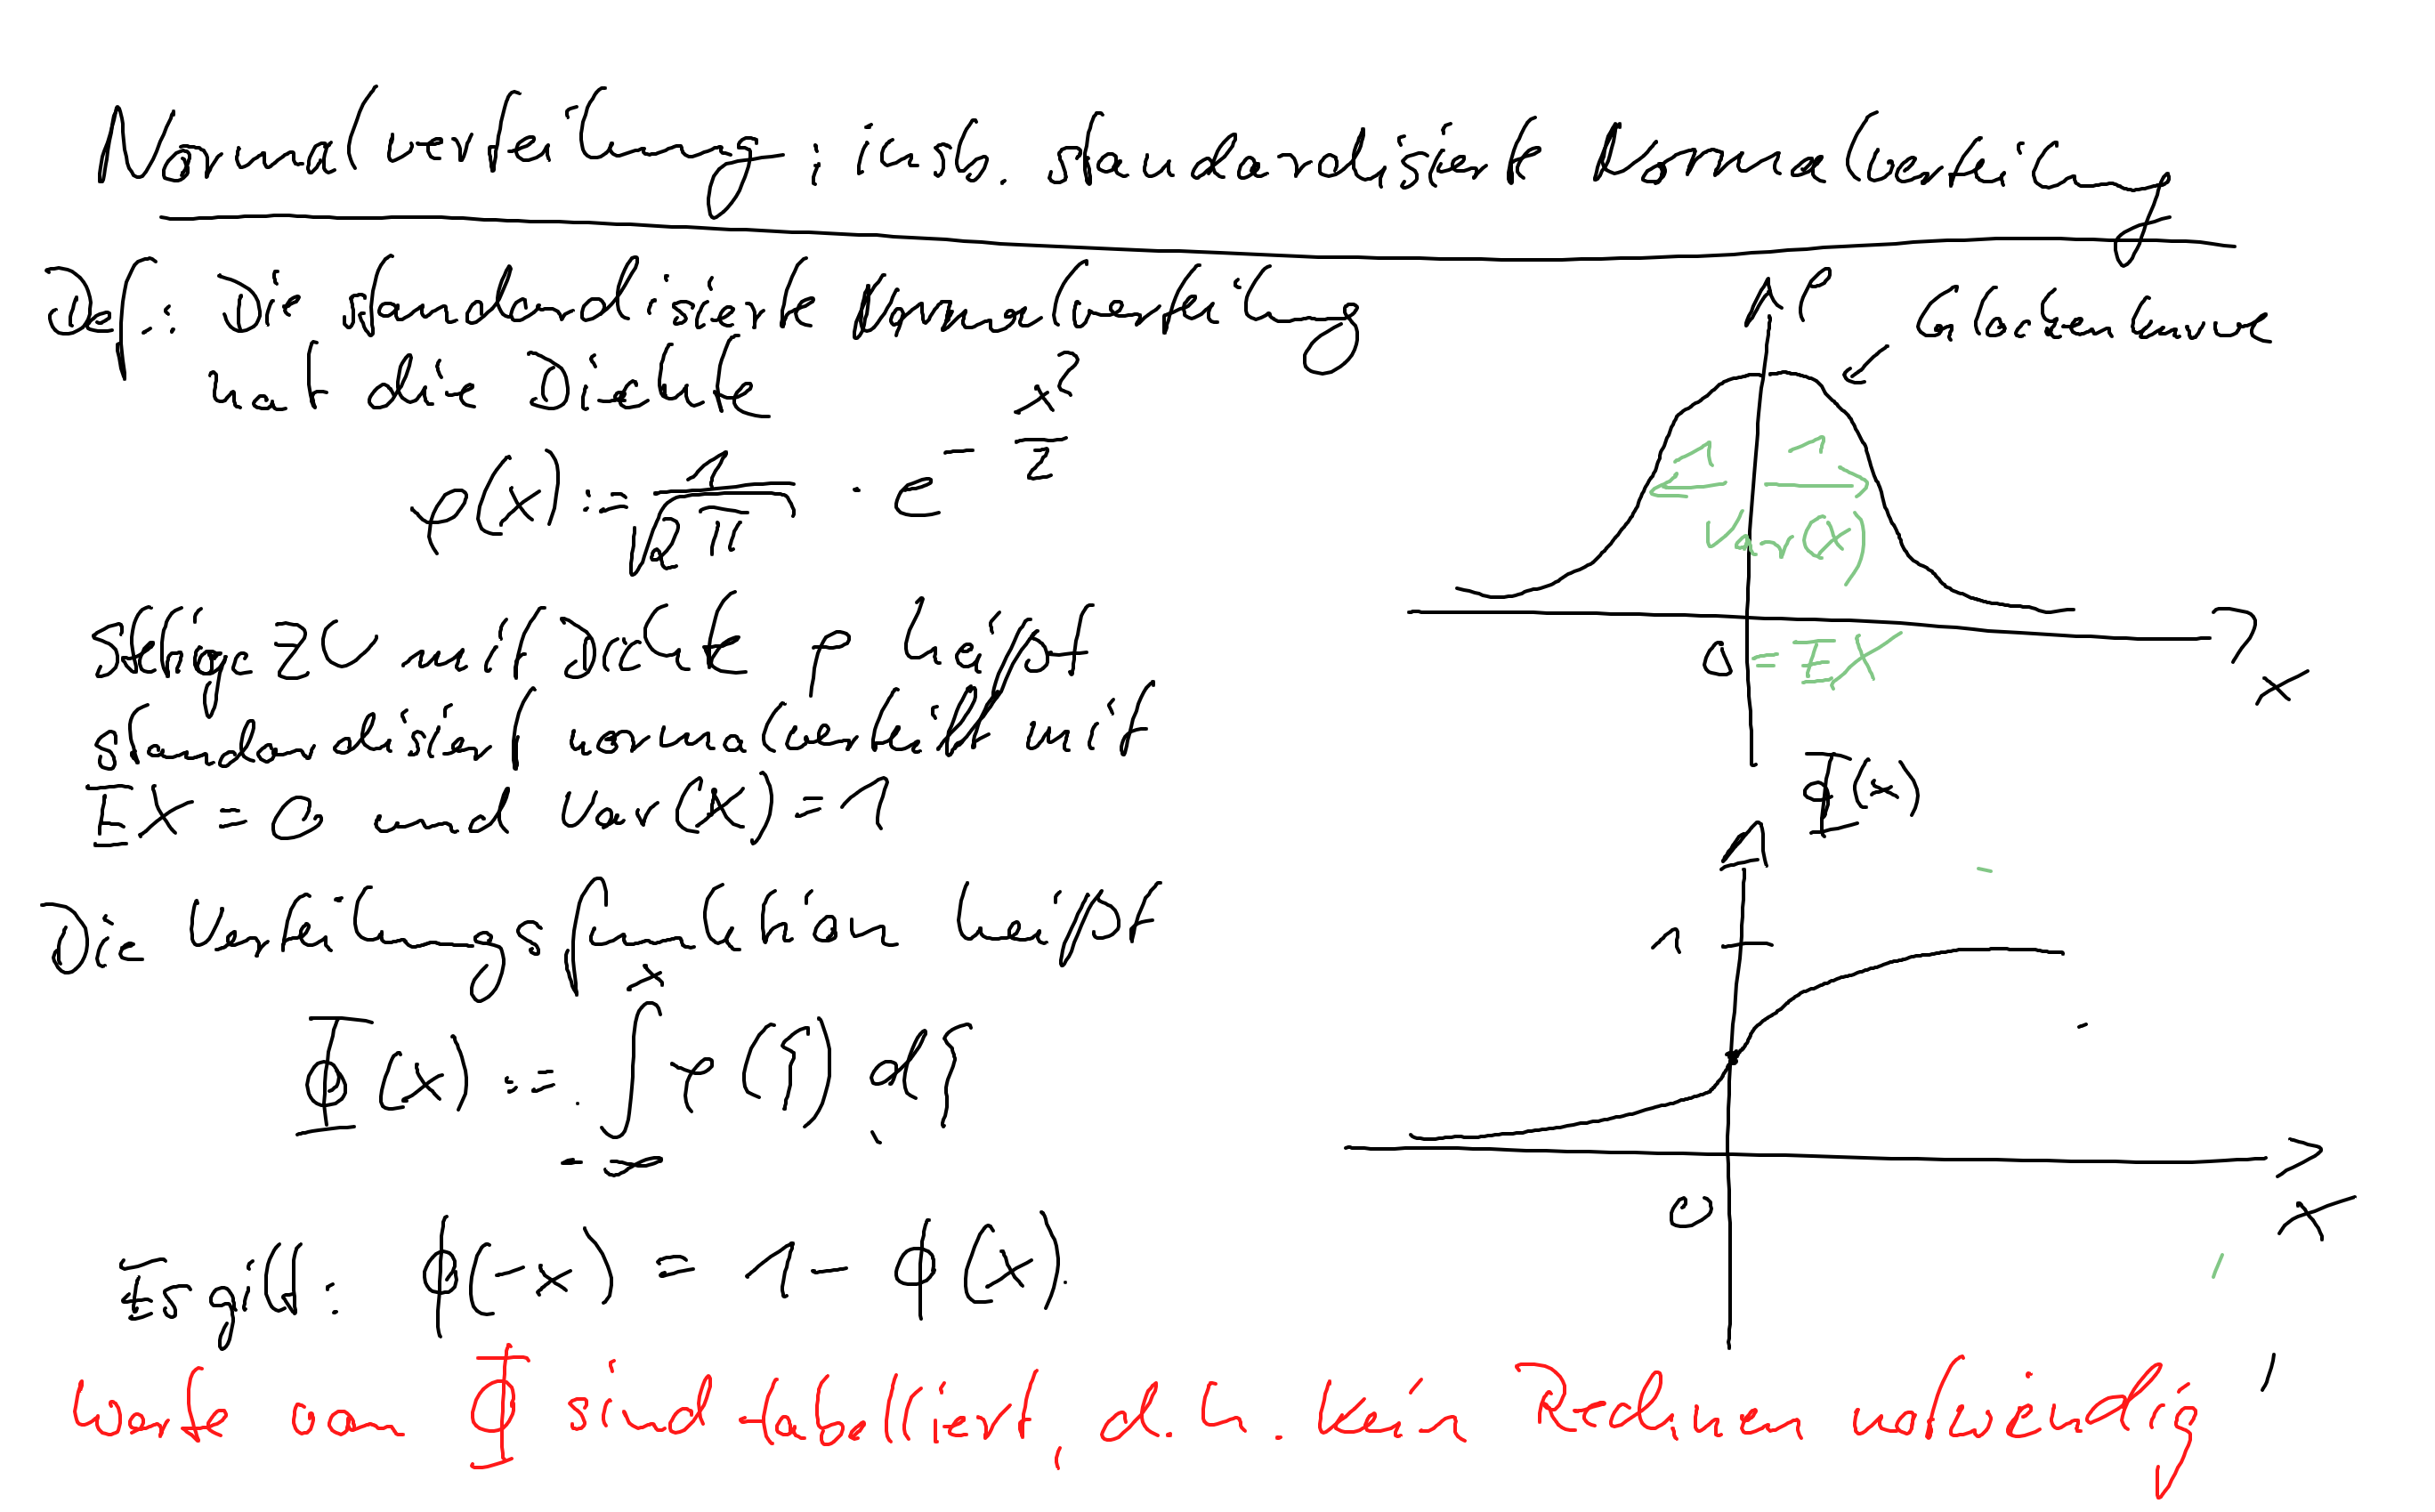 Normalverteilung: insb. standardisierte Normalverteilung
Def.: Die standardisierte Normalverteilung
hat die Dichte
ρ(x) := 1/√(2π) · e^(-x²/2)
Stetige ZV mit Dichte ρ heißt
standardisiert normalverteilt mit
EX = 0 und Var(X) = 1
Die Verteilungsfunktion heißt
Φ(x) := ∫_{-∞}^{x} ρ(ξ) dξ
Es gilt: Φ(-x) = 1 - Φ(x).
Werte von Φ sind tabelliert, d.h. kein Rechnen notwendig!
ρ
Glockenkurve
1 1
Var(X)
0 = EX
x
Φ(x)
1
0
x